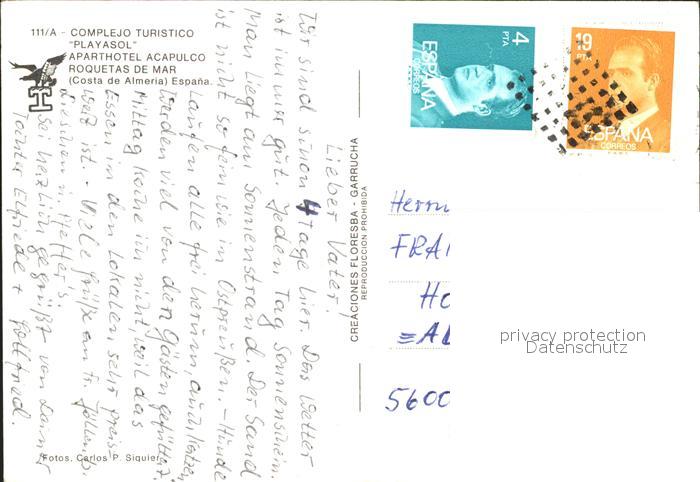 111/A - COMPLEJO TURISTICO
"PLAYASOL"
APARTHOTEL ACAPULCO
ROQUETAS DE MAR
(Costa de Almeria) España.
H
Lieber Vater!
Wir sind schon 4 Tage hier. Das Wetter
ist immer gut. Jeden Tag Sonnenschein.
Man liegt am Sonnenstrand. Der Sand
ist nicht so fein wie in Ostpreußen. - Hunde
laufen alle frei herum, auch Katzen,
werden viel von den Gästen gefüttert.
Mittag koche ich nicht, weil das
Essen in den Lokalen sehr preis-
wert ist. Viele Grüße an Fr.
Sei herzlich gegrüßt von Deiner
Tochter Elfriede + Gottfried.
Fotos. Carlos P. Siquier
CREACIONES FLORESBA - GARRUCHA
REPRODUCCION PROHIBIDA
4
PTA
ESPAÑA
CORREOS
19
PTA
ESPAÑA
CORREOS
Herrn
FRA
Ho
=AL
5600
privacy protection
Datenschutz